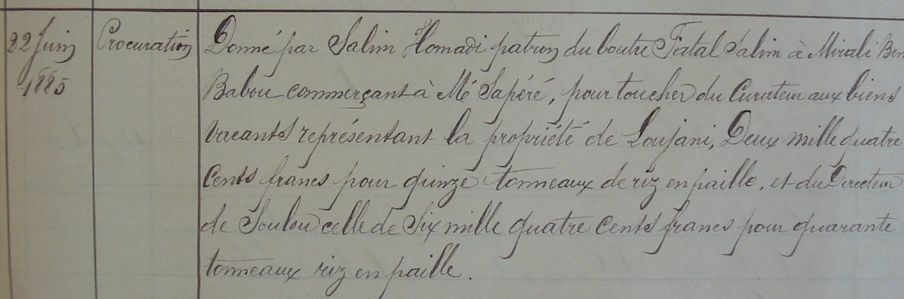 22 Juin Procuration Donné par Salim Homadi patron du boutre Fatal Salim à Mirali Ben
1885 Babou commerçant à Mé Sapéré, pour toucher du Curateur aux biens
vacants représentant la propriété de Loujani, Deux mille quatre
cents francs pour quinze tonneaux de riz en paille, et du Directeur
de Soulou celle de Six mille quatre cents francs pour quarante
tonneaux riz en paille.